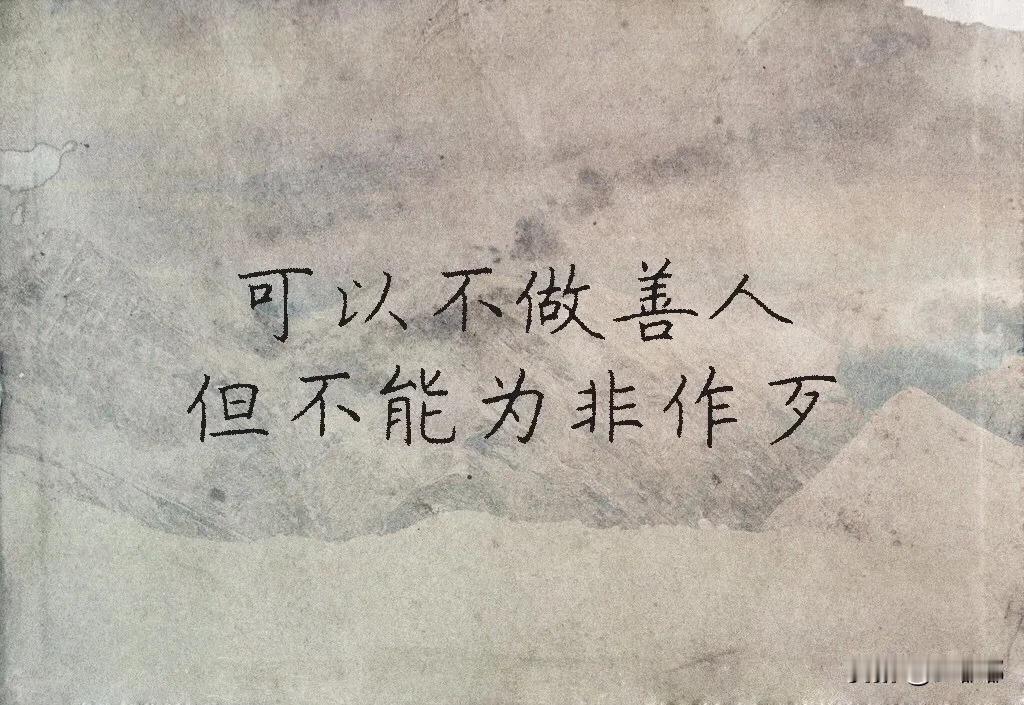 可以不做善人
但不能为非作歹